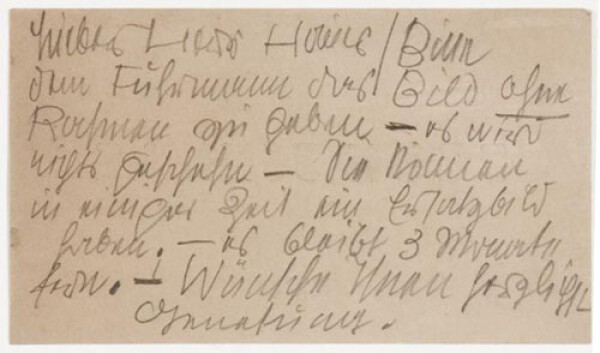 Lieber Herr Heine / Bitte
dem Fuhrmann das Bild ohne
Rahmen zu geben – es wird
nichts geschehn – Sie können
in einiger Zeit ein Ersatzbild
haben. – es bleibt 3 Monate
fern. – Wünsche Ihnen herzlichst
Genesung.